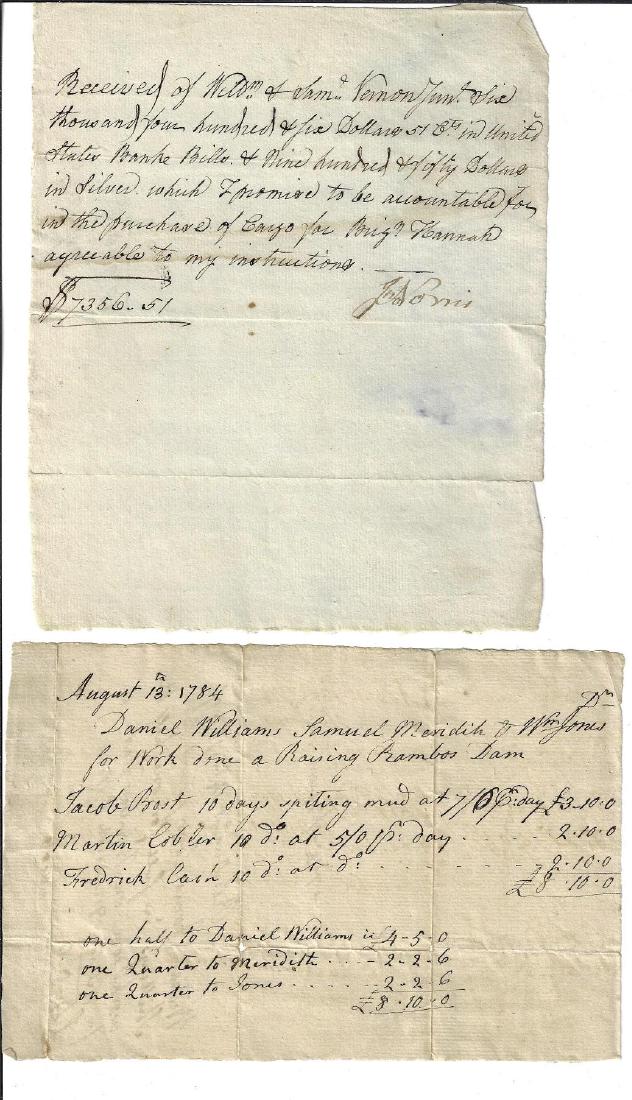 Received of Will.m & Sam.l Vernon Jun.r Six
thousand four hundred & six Dollars 51 Cts in United
States Banke Bills. & Nine hundred & fifty Dollars
in Silver. which I promise to be accountable for
in the purchase of Cargo for Brig.n Hannah
agreeable to my instructions.
$7356-51
Norris
August 13.th 1784
Dr
Daniel Williams Samuel Meridith & Wm Jones
for Work done a Raising Rambos Dam
Jacob Brost 10 days spiting mud at 7/6 Pr. day £3-10-0
Martin Cobler 10 do. at 5/0 Pr. day - - 2-10-0
Fredrick Cash 10 do. at do. - - - 2-10-0
£8-10-0
one half to Daniel Williams is £4-5-0
one Quarter to Meridith - - - 2-2-6
one Quarter to Jones - - - 2-2-6
£8-10-0